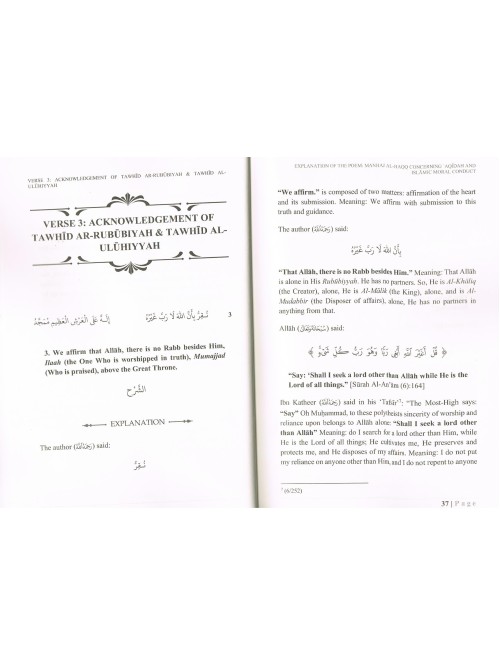 VERSE 3: ACKNOWLEDGEMENT OF TAWHĪD AR-RUBŪBIYAH & TAWHĪD AL-
ULŪHIYYAH
VERSE 3: ACKNOWLEDGEMENT OF
TAWHĪD AR-RUBŪBIYAH & TAWHĪD AL-
ULŪHIYYAH
3 نُقِرُّ بِأَنَّ اللهَ لَا رَبَّ غَيْرُهُ إِلَهٌ عَلَى الْعَرْشِ الْعَظِيمِ مُمَجَّدُ
3. We affirm that Allāh, there is no Rabb besides Him,
Ilaah (the One Who is worshipped in truth), Mumajjad
(Who is praised), above the Great Throne.
الشَّرْحُ
EXPLANATION
The author (رَحِمَهُ اللهُ) said:
نُقِرُّ
EXPLANATION OF THE POEM: MANHAJ AL-HAQQ CONCERNING 'AQĪDAH AND
ISLĀMIC MORAL CONDUCT
"We affirm." is composed of two matters: affirmation of the heart
and its submission. Meaning: We affirm with submission to this
truth and guidance.
The author (رَحِمَهُ اللهُ) said:
بِأَنَّ اللهَ لَا رَبَّ غَيْرُهُ
"That Allāh, there is no Rabb besides Him." Meaning: That Allāh
is alone in His Rubūbiyyah. He has no partners. So, He is Al-Khāliq
(the Creator), alone, He is Al-Mālik (the King), alone, and is Al-
Mudabbir (the Disposer of affairs), alone, He has no partners in
anything from that.
Allāh (سُبْحَانَهُ وَتَعَالَى) said:
﴿ قُلْ أَغَيْرَ اللَّهِ أَبْغِي رَبًّا وَهُوَ رَبُّ كُلِّ شَيْءٍ ﴾
"Say: 'Shall I seek a lord other than Allāh while He is the
Lord of all things." [Sūrah Al-An'ām (6):164]
Ibn Katheer (رَحِمَهُ اللهُ) said in his 'Tafsīr'¹: "The Most-High says:
"Say" Oh Muḥammad, to these polytheists sincerity of worship and
reliance upon belongs to Allāh alone: "Shall I seek a lord other
than Allāh" Meaning: do I search for a lord other than Him, while
He is the Lord of all things; He cultivates me, He preserves and
protects me, and He disposes of my affairs. Meaning: I do not put
my reliance on anyone other than Him, and I do not repent to anyone
(6/252)
37 | Page